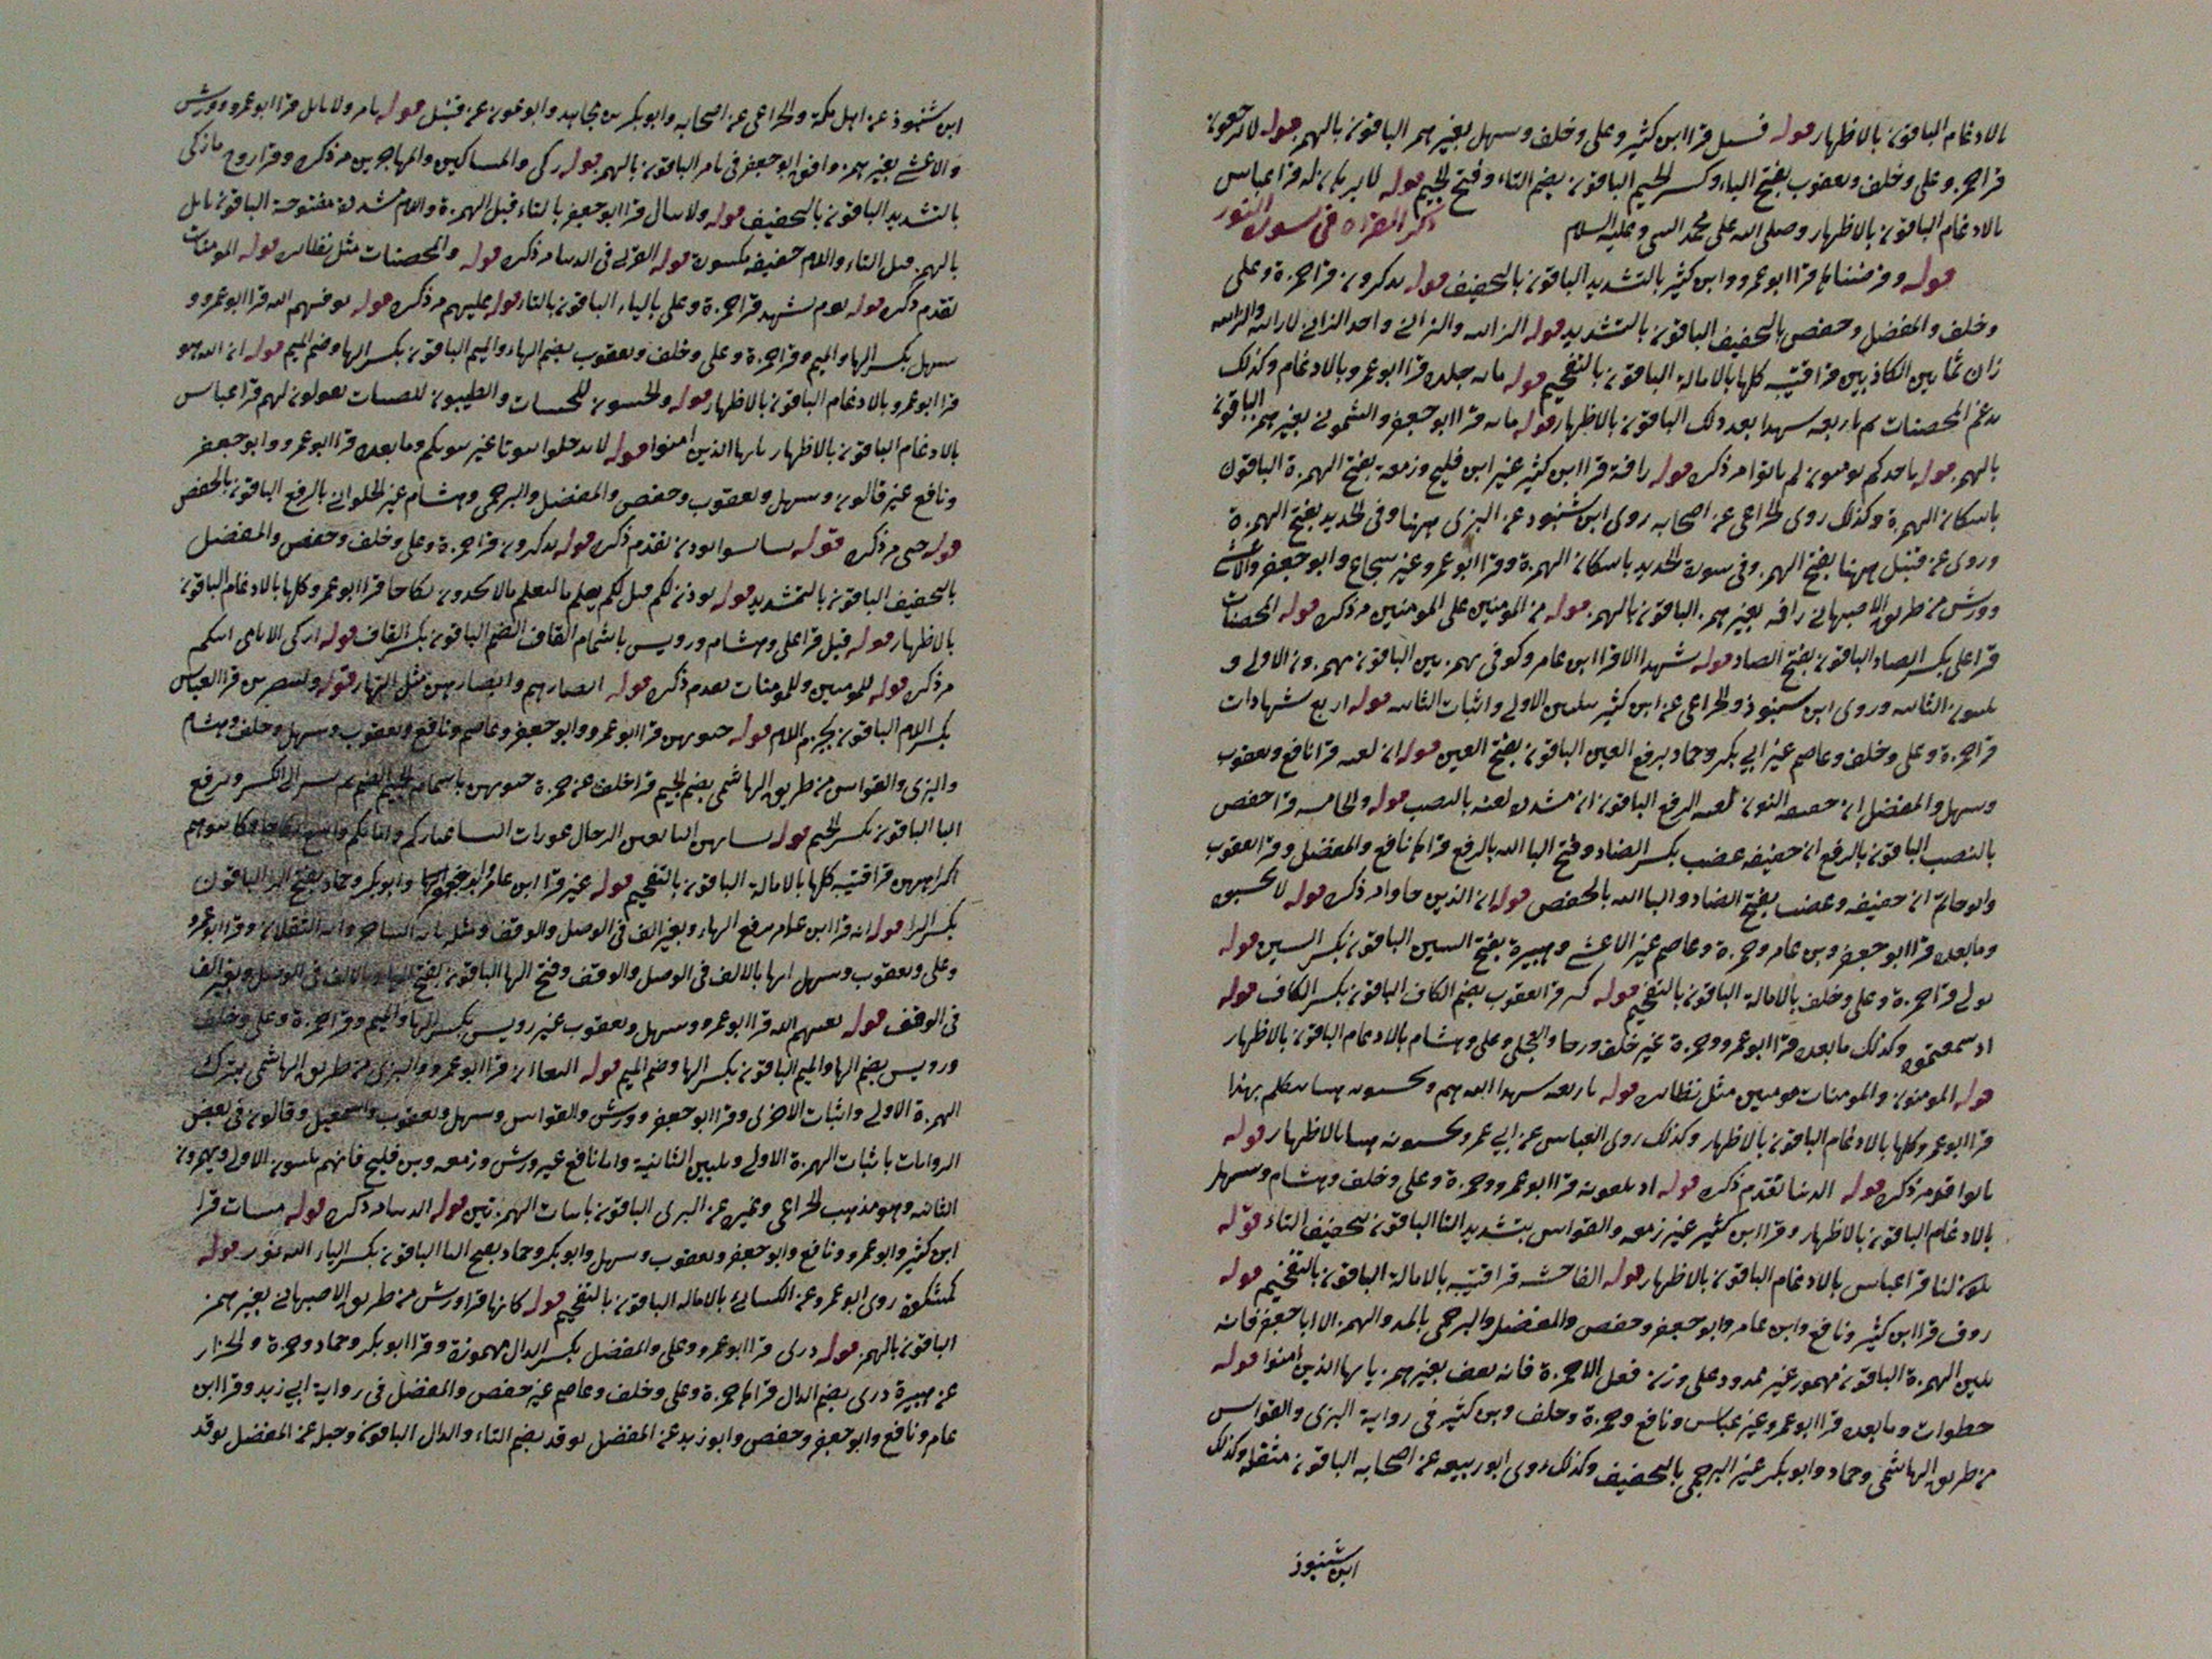 بالادغام الباقون بالاظهار قوله فسل قرا ابن كثير وعلى وخلف وسهل بغير همز الباقون بالهمز قوله لا ترجعون
قرا حمزة وعلى وخلف ويعقوب بفتح التاء وكسر الجيم الباقون بضم التاء وفتح الجيم قوله لا برهان له قرا عباس
بالادغام الباقون بالاظهار وصلى الله على محمد النبى وعليه السلام ذكر القراة فى سورة النور
قوله وفرضناها قرا ابو عمرو وابن كثير بالتشديد الباقون بالتخفيف قوله تذكرون قرا حمزة وعلى
وخلف والمفضل وحفص بالتخفيف الباقون بالتشديد قوله الزانية والزانى واحد الزانى لا زانية والزانية
زان ثمانين الكاذبين قرا قتيبة كلها بالامالة الباقون بالتفخيم قوله مائة جلدة قرا ابو عمرو بالادغام وكذلك
يدغم المحصنات ثم باربعة شهدا بعد ذلك الباقون بالاظهار قوله مائة قرا ابو جعفر والشمونى بغير همز الباقون
بالهمز قوله ياخذكم يومنون لم ياتوا مر ذكره قوله رافة قرا ابن كثير غير ابن فليح وزمعة بفتح الهمزة الباقون
باسكان الهمزة وكذلك روى الخزاعى عن اصحابه روى ابن شنبوذ عن البزى ههنا وفى الحديد بفتح الهمزة
وروى عن قنبل ههنا بفتح الهمز وفى سورة الحديد باسكان الهمزة وقرا ابو عمرو غير شجاع وابو جعفر والاعشى
وورش من طريق الاصبهانى رافه بغير همز الباقون بالهمز قوله من المومنين على المومنين مر ذكره قوله المحصنات
قرا على بكسر الصاد الباقون بفتح الصاد قوله شهدا الا قرا ابن عامر وكوفى بهمزتين الباقون يهمزون الاولى و
يلينون الثانيه وروى ابن شنبوذ والخزاعى عن ابن كثير بتليين الاولى واثبات الثانيه قوله اربع شهادات
قرا حمزة وعلى وخلف وعاصم غير ابى بكر وحماد برفع العين الباقون بفتح العين قوله ان لعنه قرا نافع ويعقوب
وسهل والمفضل ان خفيفه النون لعنه الرفع الباقون ان مشددة لعنه بالنصب قوله والخامسه قرا حفص
بالنصب الباقون بالرفع ان خفيفه غضب بكسر الضاد وفتح البا الله بالرفع قراها نافع والمفضل وقرا يعقوب
وابو حاتم ان خفيفه وغضب بفتح الضاد والبا الله بالخفض قوله ان الذين جاوا مر ذكره قوله لا تحسبوه
وما بعده قرا ابو جعفر وبن عامر وحمزة وعاصم غير الاعشى وهبيرة بفتح السين الباقون بكسر السين قوله
تولى قرا حمزة وعلى وخلف بالامالة الباقون بالتفخيم قوله كبره قرا يعقوب بضم الكاف الباقون بكسر الكاف قوله
اذ سمعتموه وكذلك ما بعده قرا ابو عمرو وحمزة غير خلف ورجا والعجلى وعلى وهشام بالادغام الباقون بالاظهار
قوله المومنون والمومنات مومنين مثل نظائره قوله باربعه شهدا الله هم وتحسبونه هينا نتكلم بهذا
قرا ابو عمرو كلها بالادغام الباقون بالاظهار وكذلك روى العباس عن ابى عمرو تحسبونه هينا بالاظهار قوله
ياتوا قوم ذكره قوله الدنيا تقدم ذكره قوله اذ تلقونه قرا ابو عمرو وحمزة وعلى وخلف وهشام وسهل
بالادغام الباقون بالاظهار وقرا ابن كثير غير زمعه والقواس بتشديد التا الباقون بتخفيف التاء قوله
يكون لنا قرا عباس بالادغام الباقون بالاظهار قوله الفاحشه قرا قتيبه بالامالة الباقون بالتفخيم قوله
روف قرا ابن كثير ونافع وابن عامر وابو جعفر وحفص والمفضل والبرجمى بالمد والهمز الا ابا جعفر فانه
يلين الهمزة الباقون مهموز غير ممدود على وزن فعل الا حمزة فانه يقف بغير همز يا ايها الذين امنوا قوله
خطوات وما بعده قرا ابو عمرو غير عباس ونافع وحمزة وخلف وبن كثير فى رواية البزى والقواس
من طريق الهاشمى وحماد وابو بكر غير البرجمى بالتخفيف وكذلك روى ابو ربيعه عن اصحابه الباقون مثقله وكذلك
ابن شنبوذ
ابن شنبوذ عن اهل مكة والخزاعى عن اصحابه وابو بكر بن مجاهد وابو عون عن قنبل قوله يامر ولا ياتل قرا ابو عمرو وورش
والاعشى بغير همز وافق ابو جعفر فى يامر الباقون بالهمز قوله زكى والمساكين والمهاجرين مر ذكره وقرا روح ما زكى
بالتشديد الباقون بالتخفيف قوله ولا يتال قرا ابو جعفر بالتاء قبل الهمزة واللام مشددة مفتوحة الباقون ياتل
بالهمز قبل التاء واللام خفيفه مكسورة قوله القربى فى الدنيا مر ذكره قوله والمحصنات مثل نظائره قوله المومنات
تقدم ذكره قوله يوم تشهد قرا حمزة وعلى بالياء الباقون بالتاء قوله عليهم مر ذكره قوله يوفيهم الله قرا ابو عمرو و
سهل بكسر الها والميم وقرا حمزة وعلى وخلف ويعقوب بضم الهاء والميم الباقون بكسر الها وضم الميم قوله ان الله هو
قرا ابو عمرو بالادغام الباقون بالاظهار قوله والخبيثون للخبيثات والطيبون للطيبات يقولون لهم قرا عباس
بالادغام الباقون بالاظهار يا ايها الذين امنوا قوله لا تدخلوا بيوتا غير بيوتكم وما بعده قرا ابو عمرو وابو جعفر
ونافع غير قالون وسهل ويعقوب وحفص والمفضل والبرجمى وهشام غير الحلوانى بالرفع الباقون بالخفض
قوله حتى مر ذكره قوله تستانسوا يوذن تقدم ذكره قوله تذكرون قرا حمزة وعلى وخلف وحفص والمفضل
بالتخفيف الباقون بالتشديد قوله يوذن لكم قيل لكم يعلم ما ليعلم ما لا يجدون نكاحا قرا ابو عمرو كلها بالادغام الباقون
بالاظهار قوله قيل قرا على وهشام ورويس باشمام القاف الضم الباقون بكسر القاف قوله ازكى الايامى اتيكم
مر ذكره قوله للمومنين وللمومنات تقدم ذكره قوله ابصارهم وابصارهن مثل النهار قوله وليضربن قرا العباس
بكسر اللام الباقون بجزم اللام قوله جيوبهن قرا ابو عمرو وابو جعفر وعاصم ونافع ويعقوب وسهل وخلف وهشام
والبزى والقواس من طريق الهاشمى بضم الجيم قرا خلف عن حمزة جيوبهن باشمام الجيم الضم ثم يشير الى الكسر ويرفع
اليا الباقون بكسر الجيم قوله نسائهن التابعين الرجال عورات النسا عبادكم وامائكم واسع نكاحا وكاتبوهم
اكراههن قرا قتيبه كلها بالامالة الباقون بالتفخيم قوله غير قرا ابن عامر وابو جعفر وابو بكر وحماد بفتح الرا الباقون
بكسر الرا قوله ايه قرا ابن عامر برفع الهاء وبغير الف فى الوصل والوقف ومثله يا ايه الساحر وايه الثقلان وقرا ابو عمرو
وعلى ويعقوب وسهل ايها بالالف فى الوصل والوقف وفتح الها الباقون بفتح الهاء بالالف فى الوصل وبغير الف
فى الوقف قوله يغنيهم الله قرا ابو عمرو وسهل ويعقوب غير رويس بكسر الها والميم وقرا حمزة وعلى وخلف
ورويس بضم الها والميم الباقون بكسر الها وضم الميم قوله البغا ان قرا ابو عمرو والبزى من طريق الهاشمى بترك
الهمزة الاولى واثبات الاخرى وقرا ابو جعفر وورش والقواس وسهل ويعقوب واسمعيل وقالون فى بعض
الروايات باثبات الهمزة الاولى وتليين الثانية واما نافع غير ورش وزمعه وبن فليح فانهم يلينون الاولى ويهمزون
الثانيه وهو مذهب الخزاعى وغيره عن البزى الباقون باثبات الهمزتين قوله الدنيا مر ذكره قوله مبينات قرا
ابن كثير وابو عمرو ونافع وابو جعفر ويعقوب وسهل وابو بكر وحماد بفتح اليا الباقون بكسر اليا الله نور قوله
كمشكوة روى ابو عمرو عن الكسائى بالامالة الباقون بالتفخيم قوله كانها قرا ورش من طريق الاصبهانى بغير همز
الباقون بالهمز قوله درى قرا ابو عمرو وعلى والمفضل بكسر الدال مهموزة وقرا ابو بكر وحماد وحمزة والخزاز
عن هبيرة درى بضم الدال قراها حمزة وعلى وخلف وعاصم غير حفص والمفضل فى رواية ابى زيد وقرا ابن
عامر ونافع وابو جعفر وحفص وابو زيد عن المفضل يوقد بضم التاء والدال الباقون وجبلة عن المفضل توقد